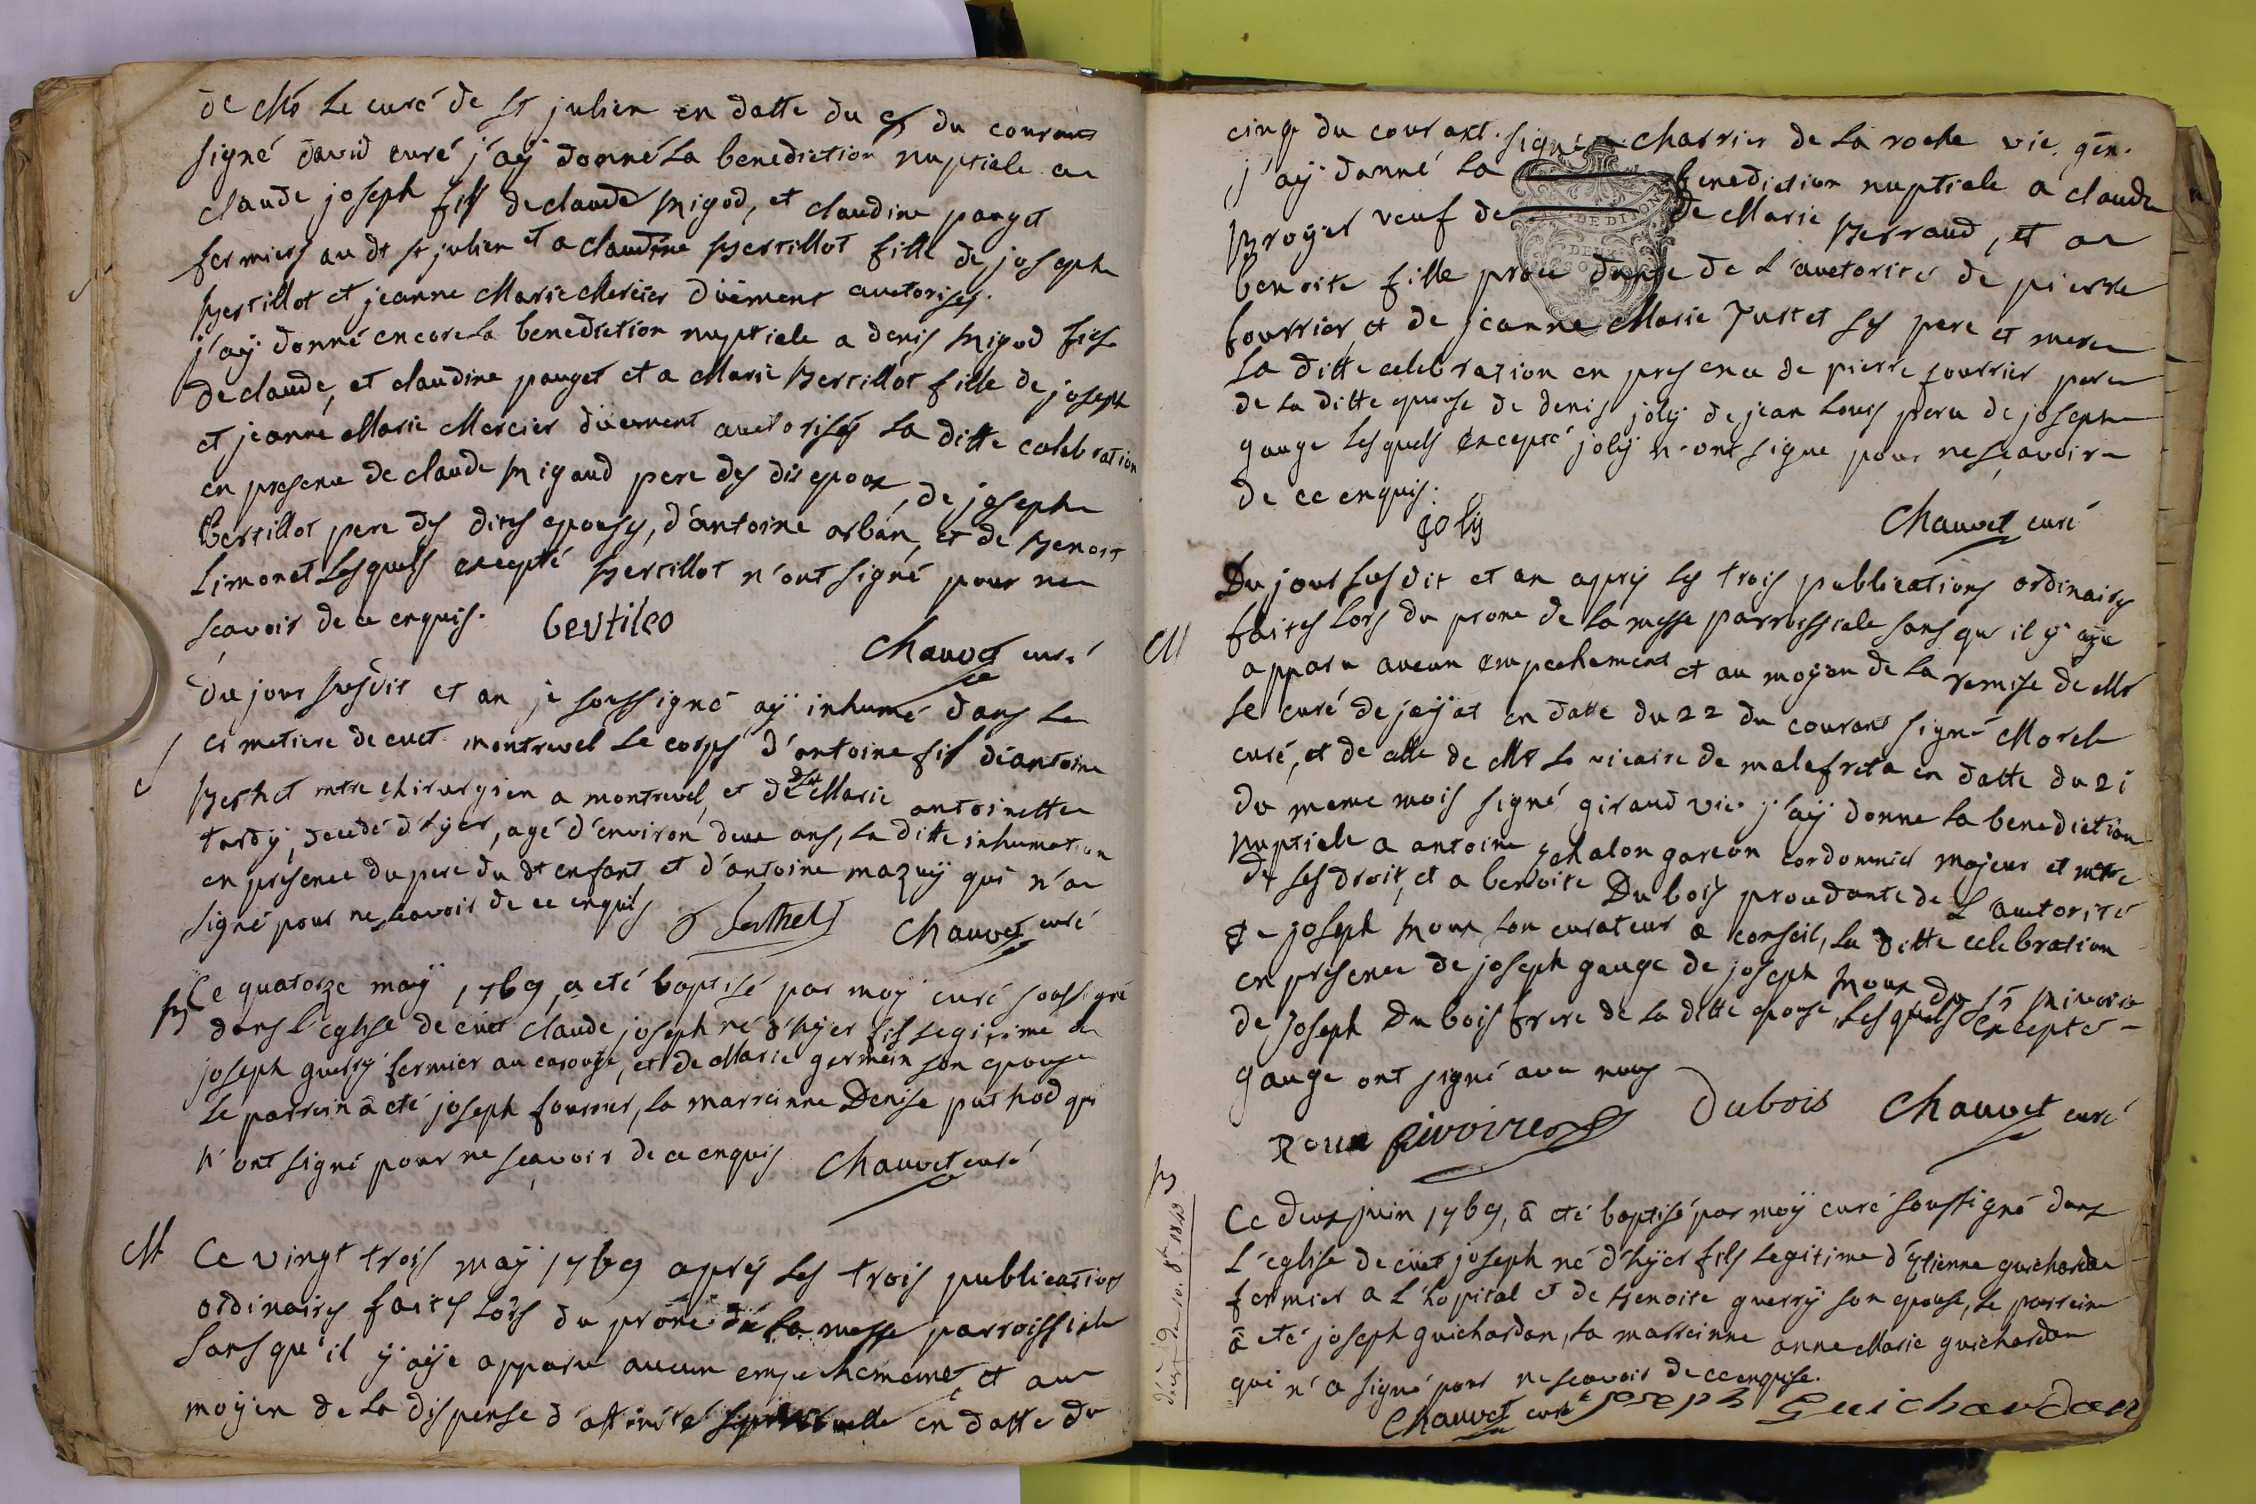 de Mr Le curé de st julien en datte du du courant
signé david curé j'aÿ donné La benediction nuptiale a
claude joseph fils de claude Migod, et claudine pauget
fermiers au dt st julien et a claudine Bertillot fille de joseph
Bertillot et jeanne Marie Mercier düement auctorisés.
j'aÿ donné encore La benediction nuptiale a denis Migod fils
de claude, et claudine pauget et a Marie Bertillot fille de joseph
et jeanne Marie Mercier düement auctorisés La ditte celebration
en presence de claude Migaud pere des dis epoux, de joseph
Bertillot pere des dites epouses, d'antoine orban, et de Benoit
Limonet Lesquels excepté Bertillot n'ont signé pour ne
scavoir de ce enquis. bertileo
Chauvet curé
du jour susdit et an je soussigné aÿ inhumé dans Le
cimetiere de cuet montrevel Le corps d'antoine fils d'antoine
Berthet mtre chirurgien a montrevel, et de dlle Marie antoinette
tardÿ, decedé d'hÿer, agé d'environ deux ans, La ditte inhumation
en presence du pere du dt enfant et d'antoine mazuÿ qui n'a
signé pour ne scavoir de ce enquis Berthet Chauvet curé
B Ce quatorze maÿ 1769, a eté baptisé par moÿ curé soussigné
dans L'eglise de cüet claude joseph né d'hÿer fils legitime de
joseph guerrÿ fermier au carouge, et de Marie germain son epouse
Le parrein â eté joseph fourrier, La marreinne Denise puthod qui
n'ont signé pour ne scavoir de ce enquis Chauvet curé
M Ce vingt trois maÿ 1769 après Les trois publications
ordinaires faites Lors du prône de La messe parroissiale
sans qu'il ÿ aÿe apparu aucun empechement et au
moÿen de La dispense d'affinité spirituelle en datte du
cinq du courant. signé Charrier de La roche vic. gén.
j'aÿ donné La benediction nuptiale a claude
Broyer veuf de de Marie Berraud, et a
benoite fille procedante de L'auctorité de pierre
fourrier, et de jeanne Marie Justet ses pere et mere
La ditte celebration en presence de pierre fourrier pere
de La ditte epouse de denis jolÿ de jean Louis peru de joseph
gauge Lesquels excepté jolÿ n'ont signé pour ne scavoir
de ce enquis.
jolÿ Chauvet curé
Du jour susdit et an après Les trois publications ordinaires
M faites Lors du prone de La messe parroissiale sans qu'il ÿ aÿe
apparu aucun empechement et au moÿen de La remise de Mr
Le curé de jaÿat en datte du 22 du courant signé Morel
curé, et de celle de Mr Le vicaire de malafreta en datte du 21
du meme mois signé giraud vic. j'aÿ donné La benediction
nuptiale a antoine chalon garcon cordonnier majeur et mtre
de ses droit, et a benoite Dubois procedante de L'auctorité
de joseph Roux son curateur a conseil, La ditte celebration
en presence de joseph gauge de joseph Roux du Sr Pivoire
de joseph Dubois frere de La ditte epouse, Lesquels excepté
gauge ont signé avec nous
Roux pivoire Dubois Chauvet curé
B
Ce deux juin 1769, â eté baptisé par moÿ curé soussigné dans
L'eglise de cüet joseph né d'hÿer fils Legitime d'Etienne guichardan
fermier a L'hopital et de Benoite guerrÿ son epouse, Le parrein
â eté joseph guichardan, La marreinne anne Marie guichardan
qui n'a signé pour ne scavoir de ce enquise.
Chauvet curé joseph Guichardan